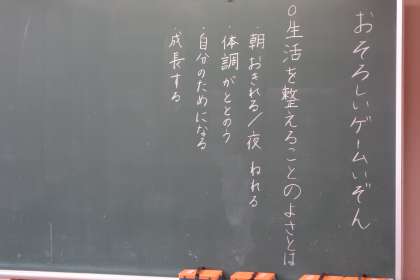 おそろしいゲームいぞん
○生活を整えることのよさとは
・朝おきれる/夜ねれる
・体調がととのう
・自分のためになる
・成長する